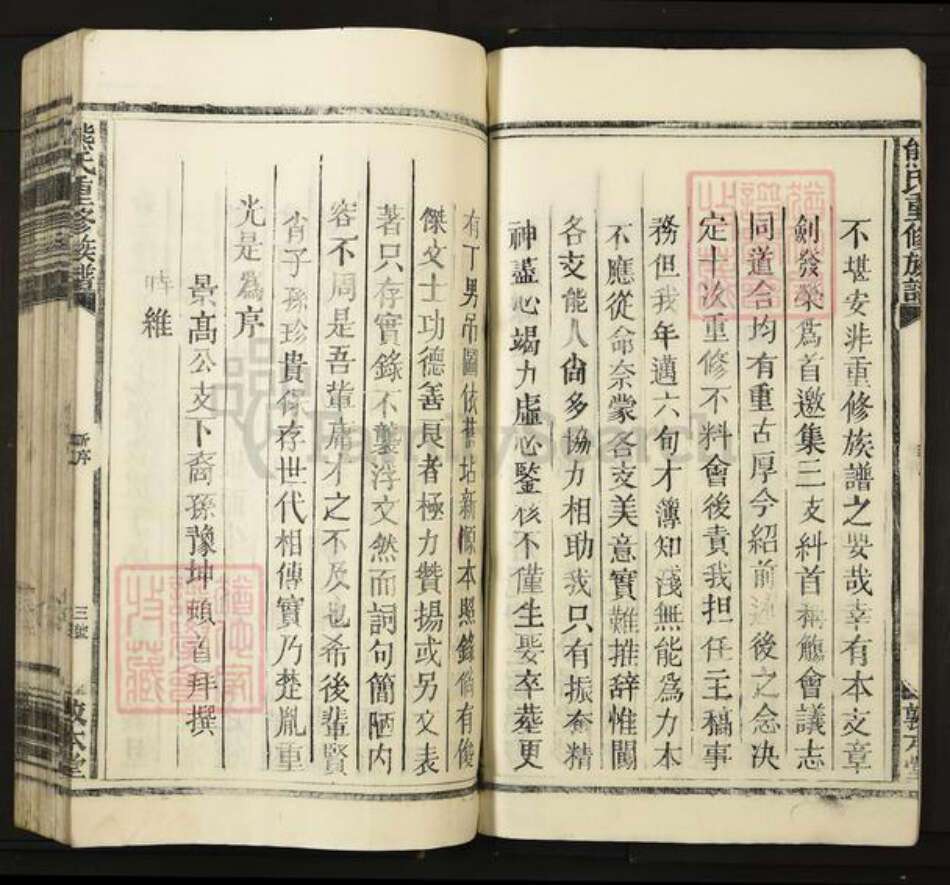 熊氏重修族譜
敦本堂
不堪安非重修族譜之要哉幸有本支章
劍發榮爲首邀集三支糾首稱觴會議志
同道合均有重古厚今紹前述後之念决
定十次重修不料會後責我担任主稿事
務但我年邁六旬才薄知淺無能爲力本
不應從命奈蒙各支美意實難推辞惟闔
各支能人尙多協力相助我只有振奮精
神盡心竭力虛心鑒核不僅生娶卒塟更
有丁男吊圖依 新 本照錄倘有俊
傑文士功德善良者極力贊揚或另文表
著只存實錄不襲浮文然而詞句簡陋内
容不周是吾輩庸才之不及也希後輩賢
肖子孫珍貴保存世代相傳實乃楚胤重
光是為序
景高公支下裔孫豫坤頓首拜撰
時維
熊氏重修族譜
序
三
敦本堂